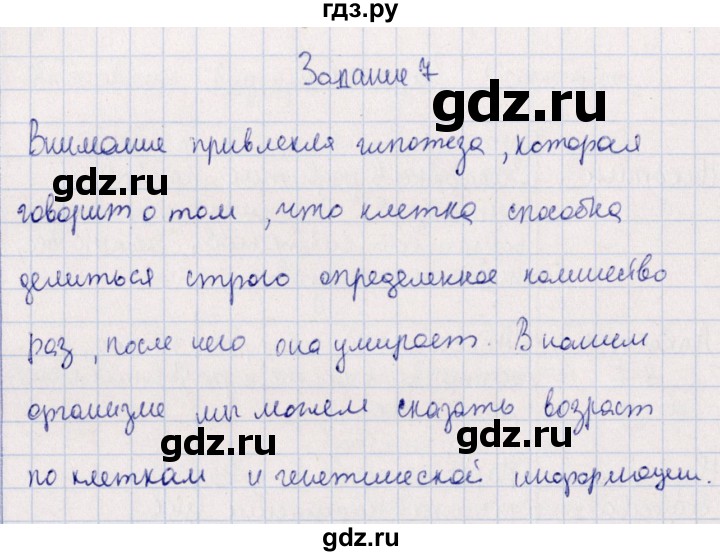 гдз.ру
Задание 7
gdz.ru
Внимание привлекла гипотеза, которая
gdz.ru
говорит о том, что клетка способна
делиться строго определенное количество
раз, после чего она умирает. В нашем
организме мы можем сказать возраст
gdz.ru
gdz.ru
по клеткам и генетической информации.
gdz.ru